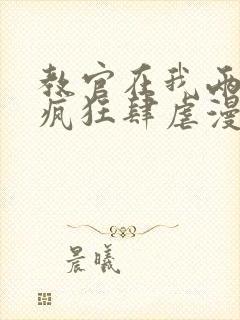 教官在我两
疯狂肆虐漫
晨曦